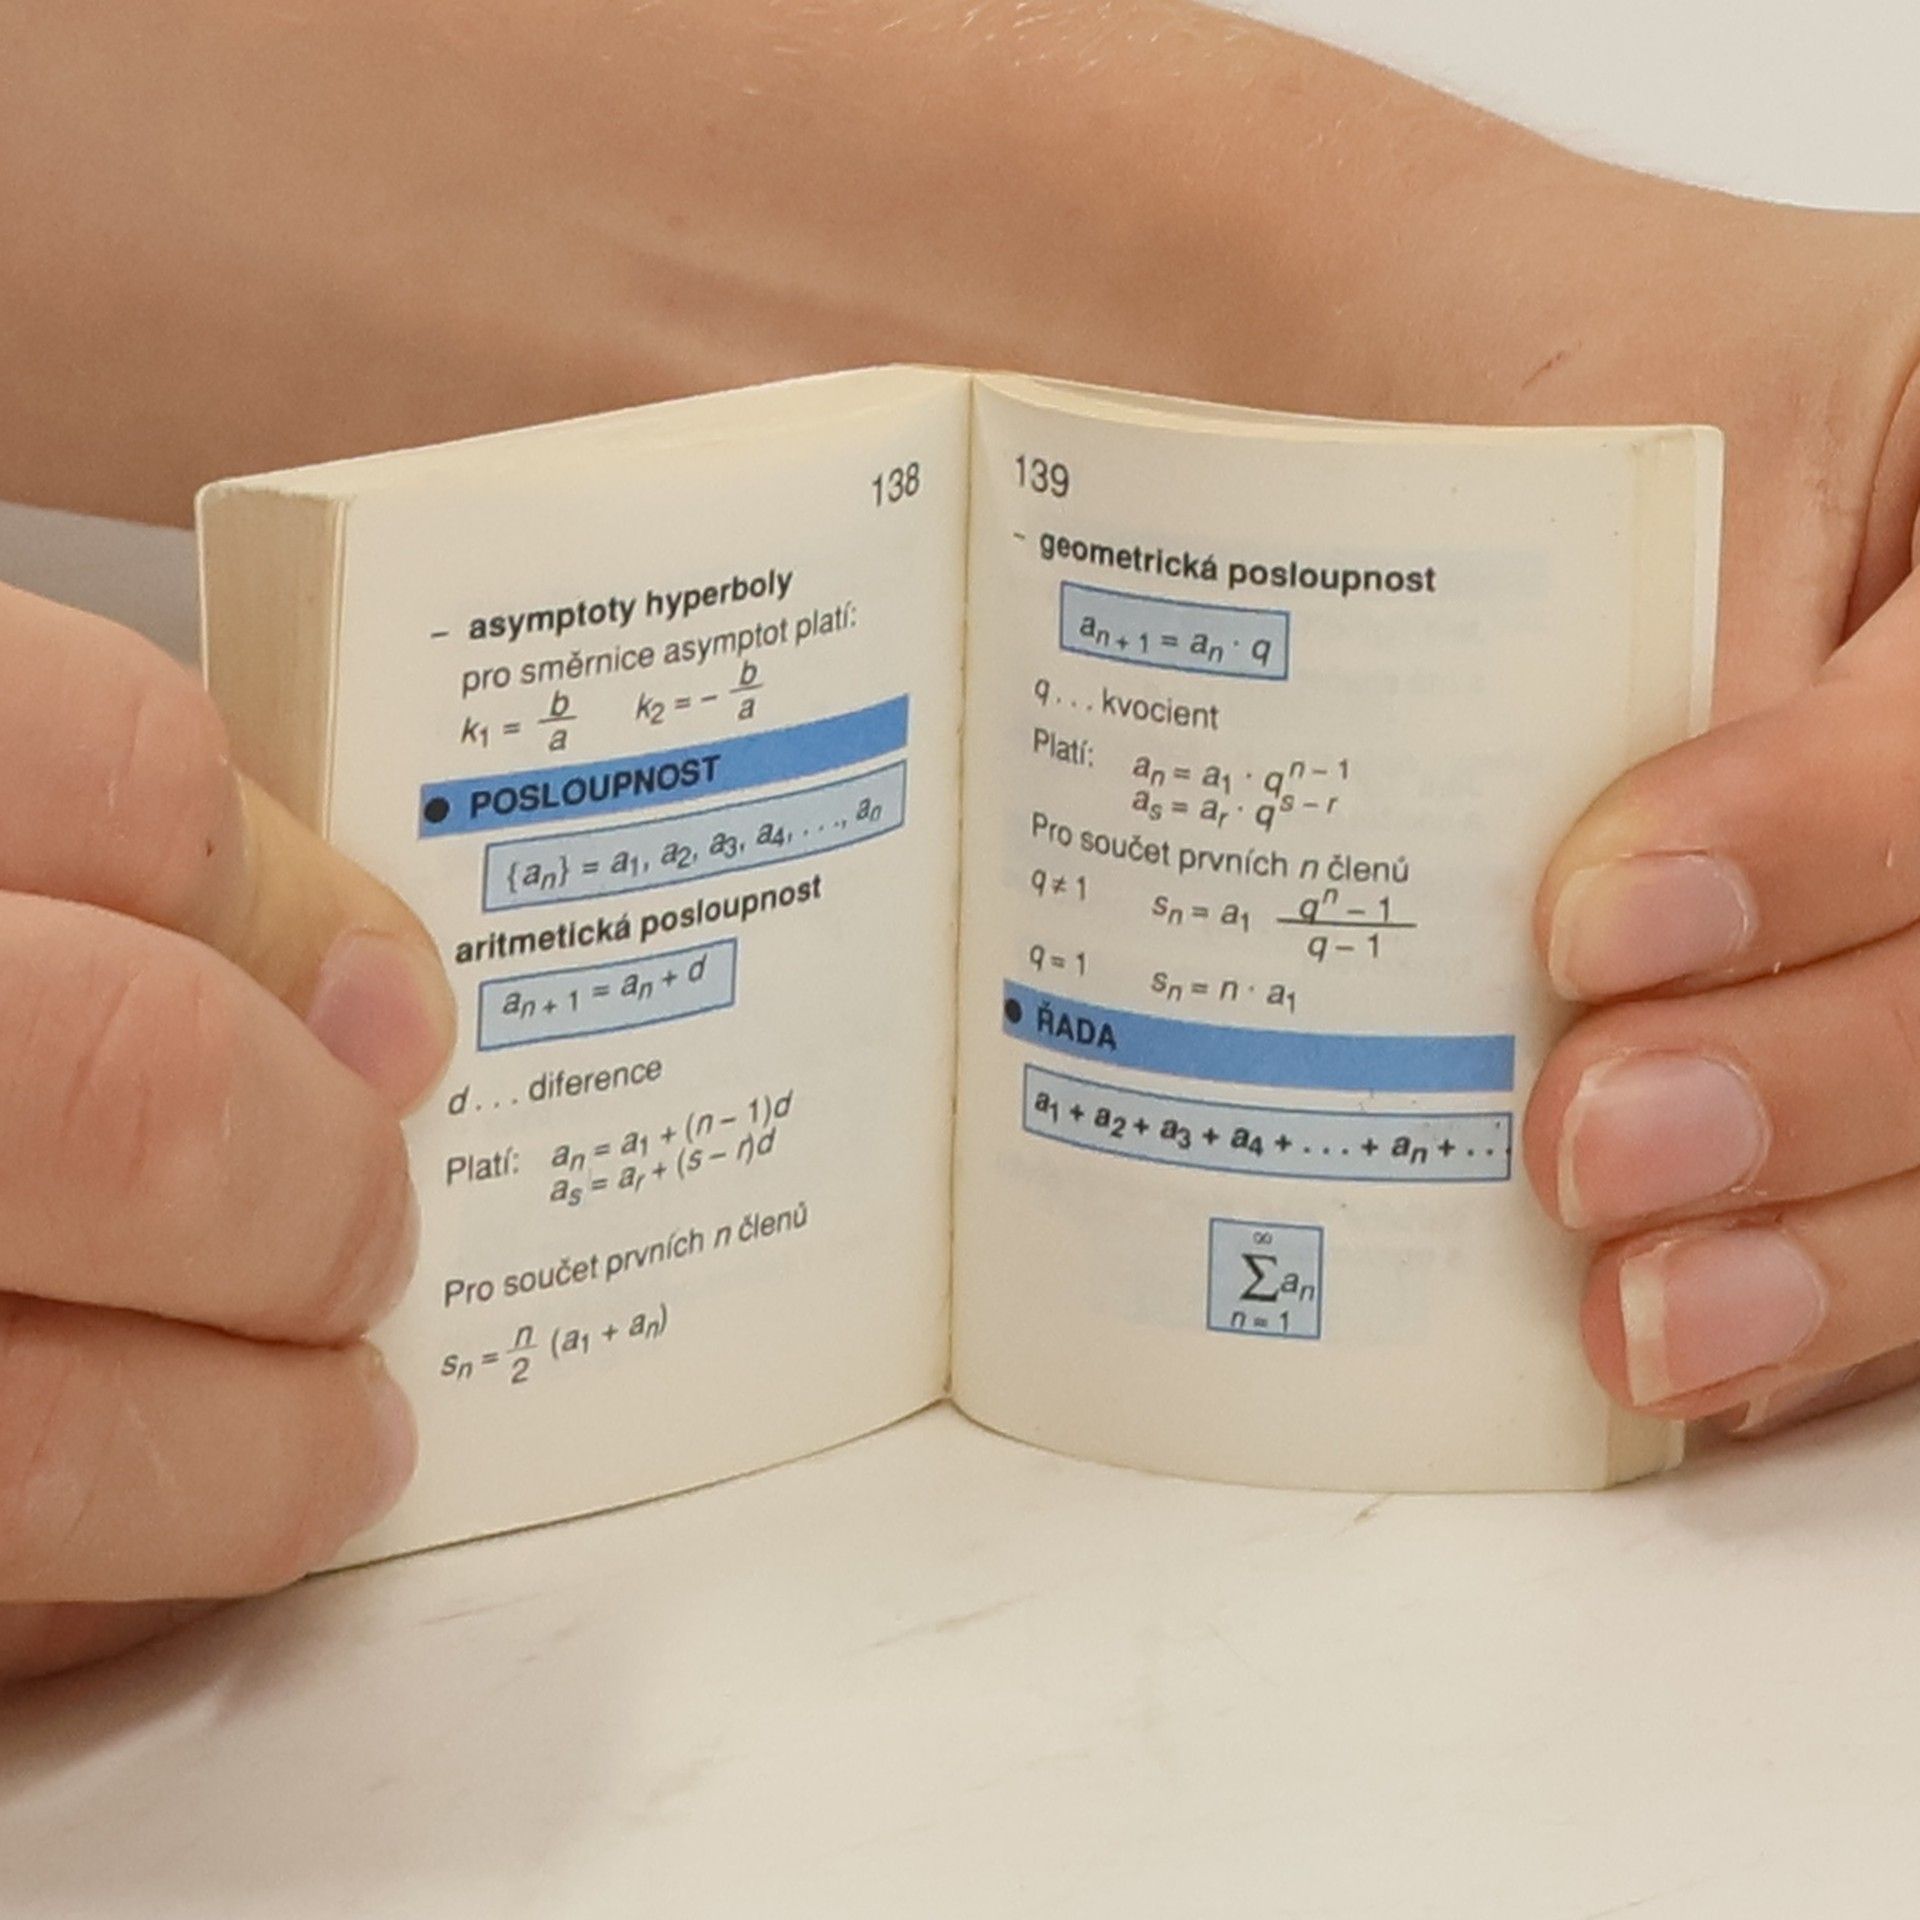 138
– asymptoty hyperboly
pro směrnice asymptot platí:
k₁ = b/a k₂ = – b/a
● POSLOUPNOST
{aₙ} = a₁, a₂, a₃, a₄, . . ., aₙ
aritmetická posloupnost
aₙ₊₁ = aₙ + d
d . . . diference
Platí: aₙ = a₁ + (n – 1)d
aₛ = aᵣ + (s – r)d
Pro součet prvních n členů
sₙ = n/2 (a₁ + aₙ)
139
– geometrická posloupnost
aₙ₊₁ = aₙ · q
q . . . kvocient
Platí: aₙ = a₁ · qⁿ⁻¹
aₛ = aᵣ · qˢ⁻ʳ
Pro součet prvních n členů
q ≠ 1 sₙ = a₁ (qⁿ – 1)/(q – 1)
q = 1 sₙ = n · a₁
● ŘADA
a₁ + a₂ + a₃ + a₄ + . . . + aₙ + . . .
∞
∑ aₙ
n = 1